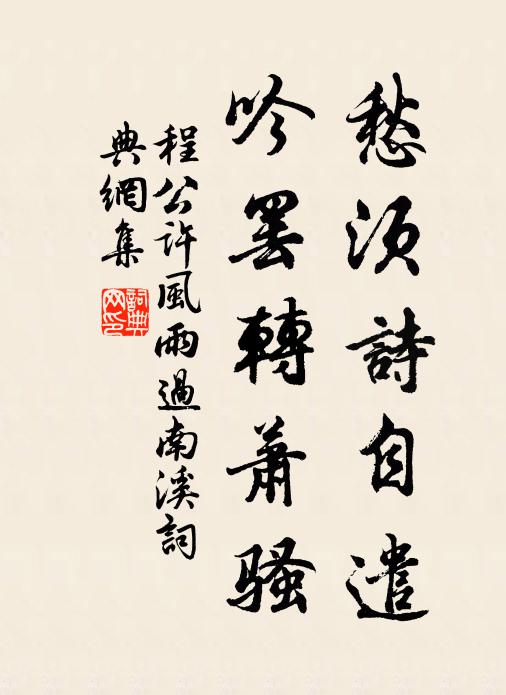 愁須詩自遣
吟罢轉蕭騷
程公許風雨過南溪詞
典網集
詞典网印